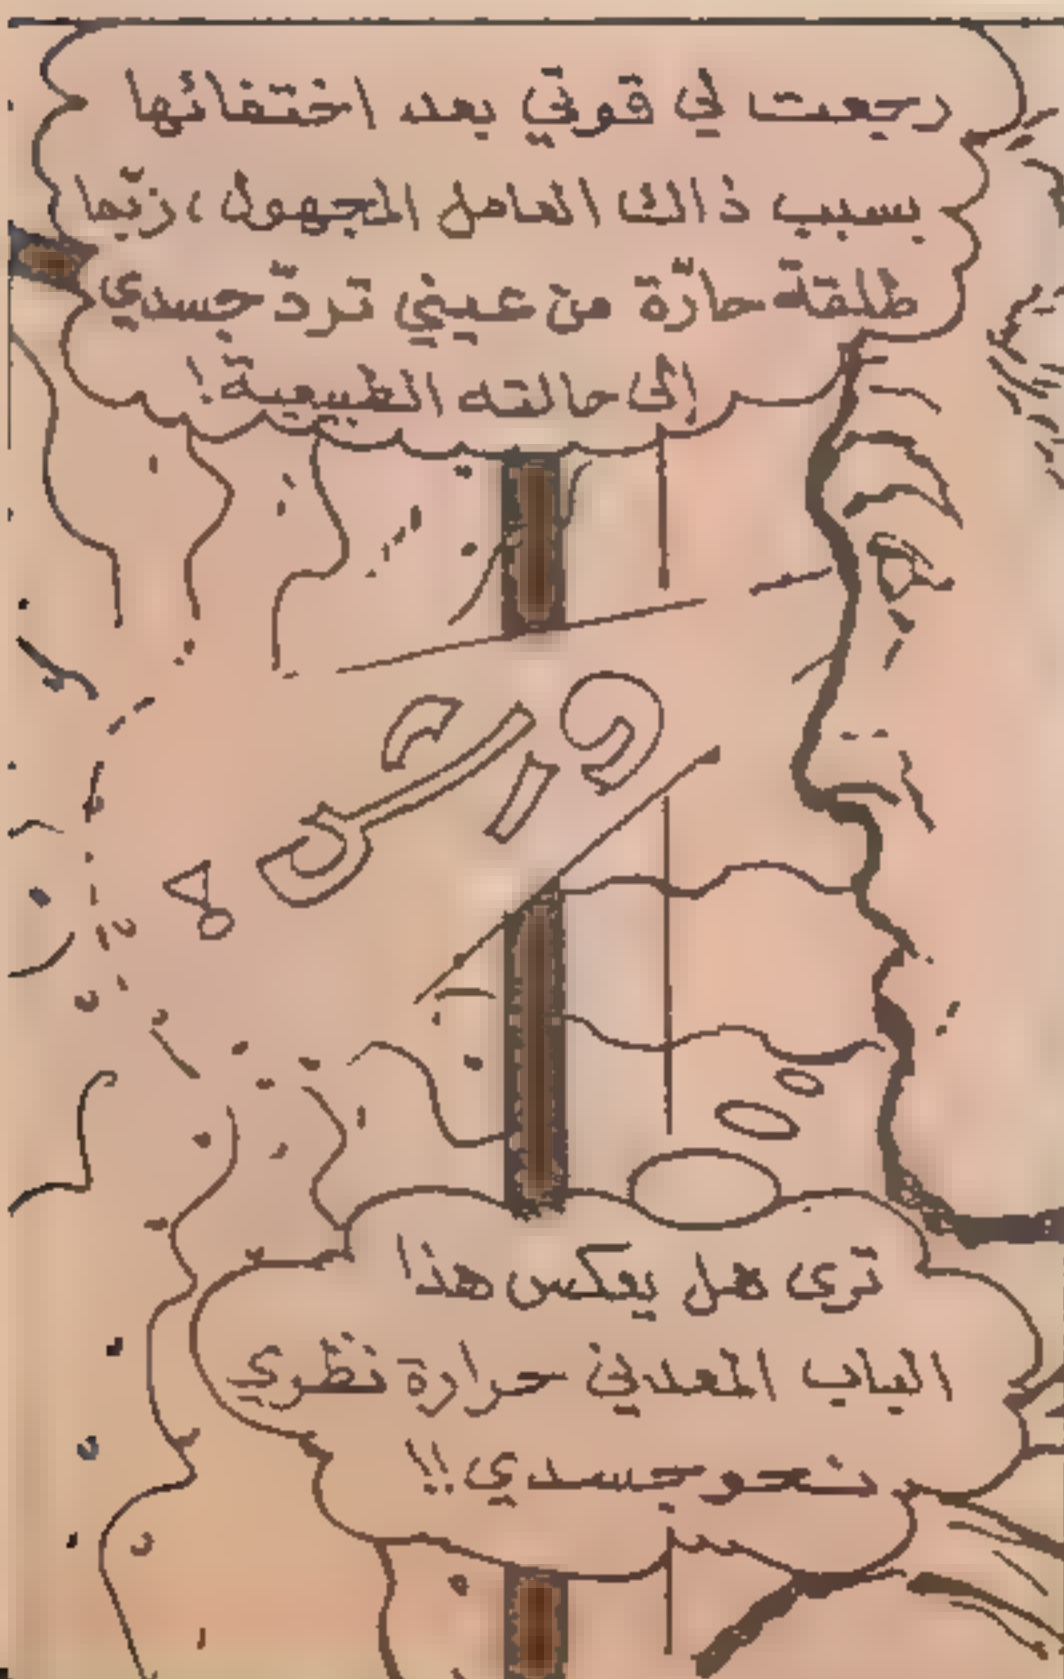 رجعت لي قوتي بعد اختفائها
بسبب ذالك العامل المجهول، ربّما
طلقة حارّة من عيني تردّ جسدي
إلى حالته الطبيعية!
ترى هل يعكس هذا
الباب المعدني حرارة نظري
نحو جسدي!!